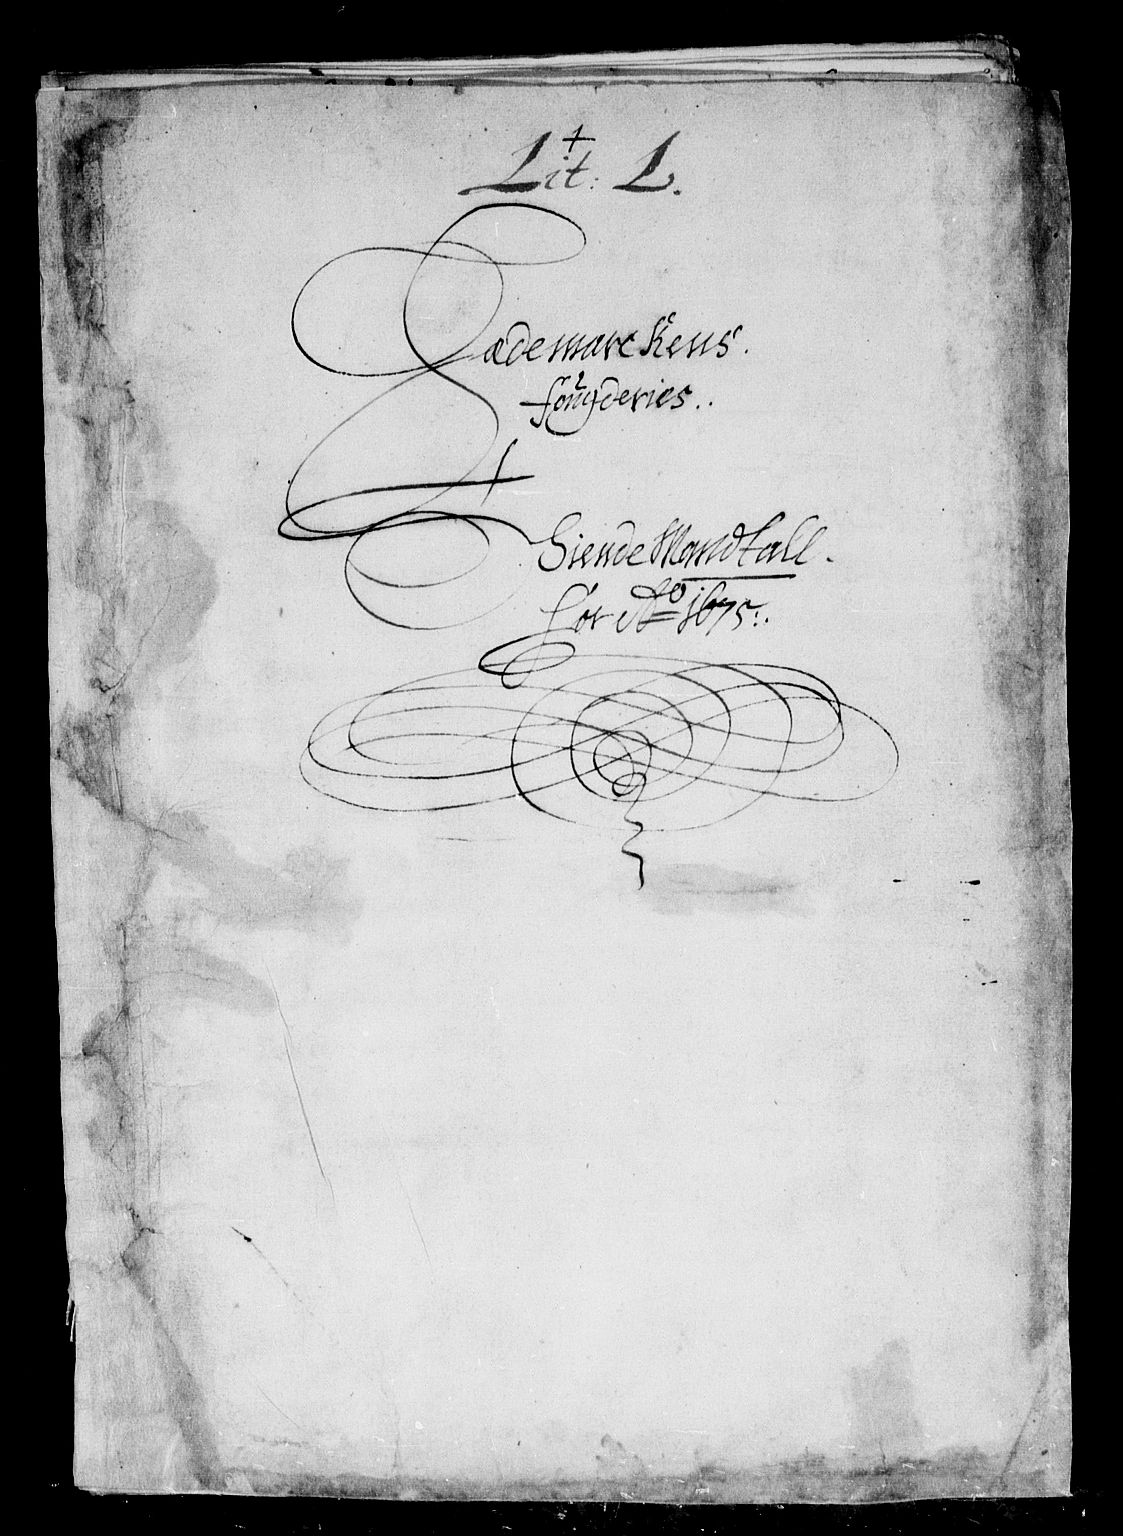 Lit: L.
Hædemarckens.
fougderies..
Tiende Mandtall.
for Ao 1675:.